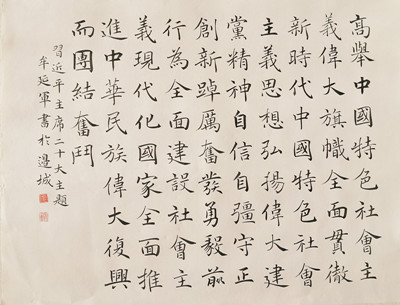 高舉中國特色社會主
義偉大旗幟全面貫徹
新時代中國特色社會
主義思想弘揚偉大建
黨精神自信自彊守正
創新踔厲奮發勇毅前
行為全面建設社會主
義現代化國家全面推
進中華民族偉大復興
而團結奮鬥
習近平主席二十大主題
牟延軍書於邊城